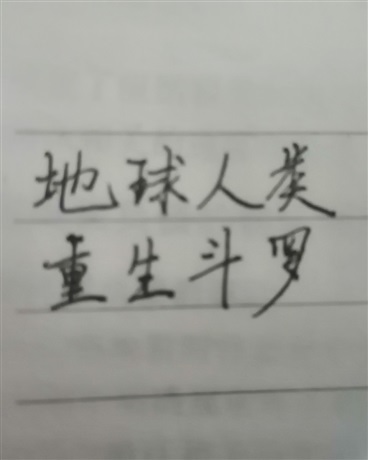 地球人类
重生斗罗